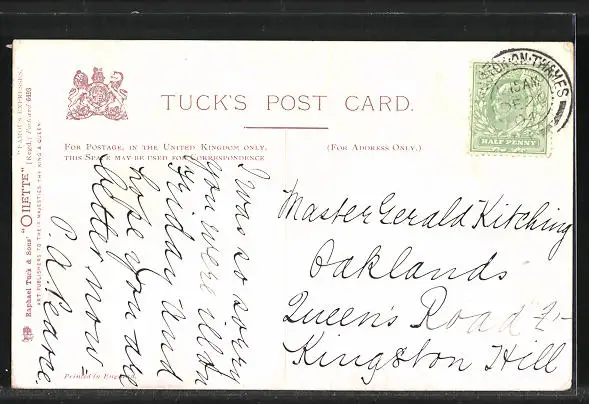 TUCK'S POST CARD.
FOR POSTAGE, IN THE UNITED KINGDOM ONLY,
THIS SPACE MAY BE USED FOR CORRESPONDENCE
(FOR ADDRESS ONLY.)
HALF PENNY
ON-THAMES
I was so sorry
you were ill on
Friday and
hope you are
better now
P. A. Pearce.
Master Gerald Kitching
Oaklands
Queen's Road
Kingston Hill
"FAMOUS EXPRESSES."
Raphael Tuck & Sons' "OILETTE" [Regd.] Postcard 6493
ART PUBLISHERS TO THEIR MAJESTIES THE KING & QUEEN.
Printed in England.